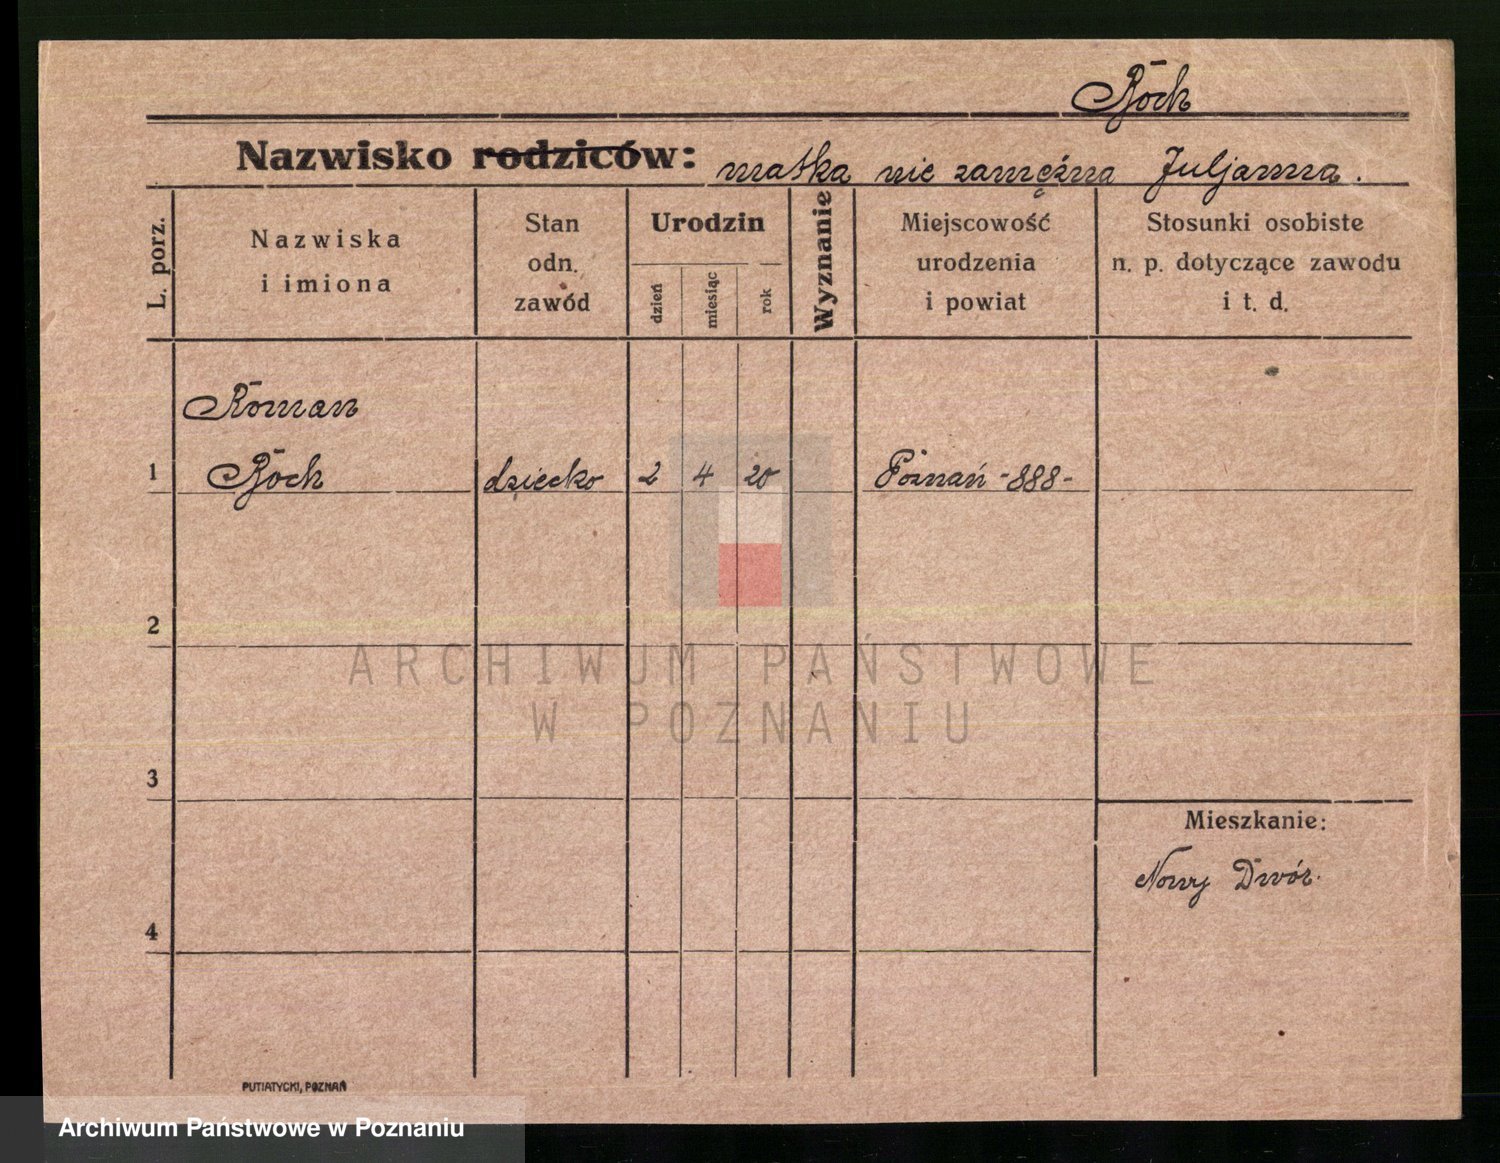 Röch
Nazwisko rodziców: matka nie zamężna Juljanna.
L. porz.
Nazwiska
i imiona
Stan
odn.
zawód
Urodzin
dzień
miesiąc
rok
Wyznanie
Miejscowość
urodzenia
i powiat
Stosunki osobiste
n. p. dotyczące zawodu
i t. d.
Roman
1 Röch dziecko 2 4 20 Poznań -888-
2
ARCHIWUM PAŃSTWOWE
W POZNANIU
3
Mieszkanie:
Nowy Dwór.
4
PUTIATYCKI, POZNAŃ
Archiwum Państwowe w Poznaniu